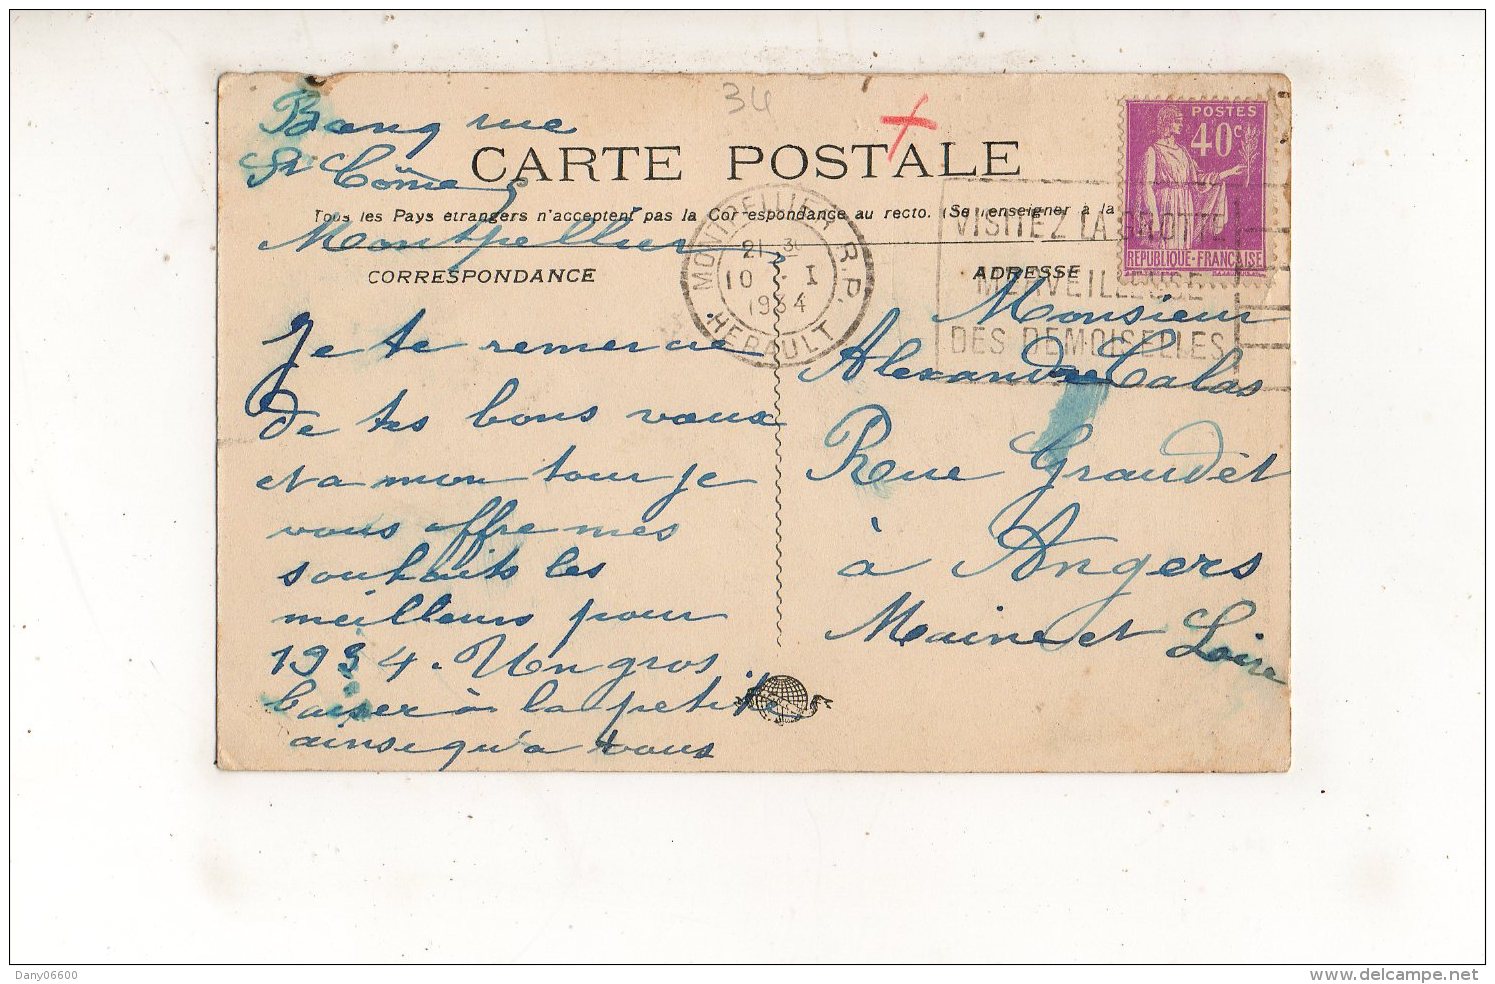 34
Bang rue
St Côme 5
Montpellier
CARTE POSTALE
Tous les Pays étrangers n'acceptent pas la Correspondance au recto. (Se renseigner à la
CORRESPONDANCE
Je te remercie
de tes bons vœux
et a mon tour je
vous offre mes
souhaits les
meilleurs pour
1934. Un gros
baiser à la petite
ainsi qu'a vous
MONTPELLIER R.P.
21 30
10 - I
1934
HERAULT
VISITEZ LA GROTTE
MERVEILLEUSE
DES DEMOISELLES
POSTES
40c
REPUBLIQUE-FRANCAISE
ADRESSE
Monsieur
Alexandre Calas
Rue Graudèt
à Angers
Maine et Loire
Dany06600
www.delcampe.net